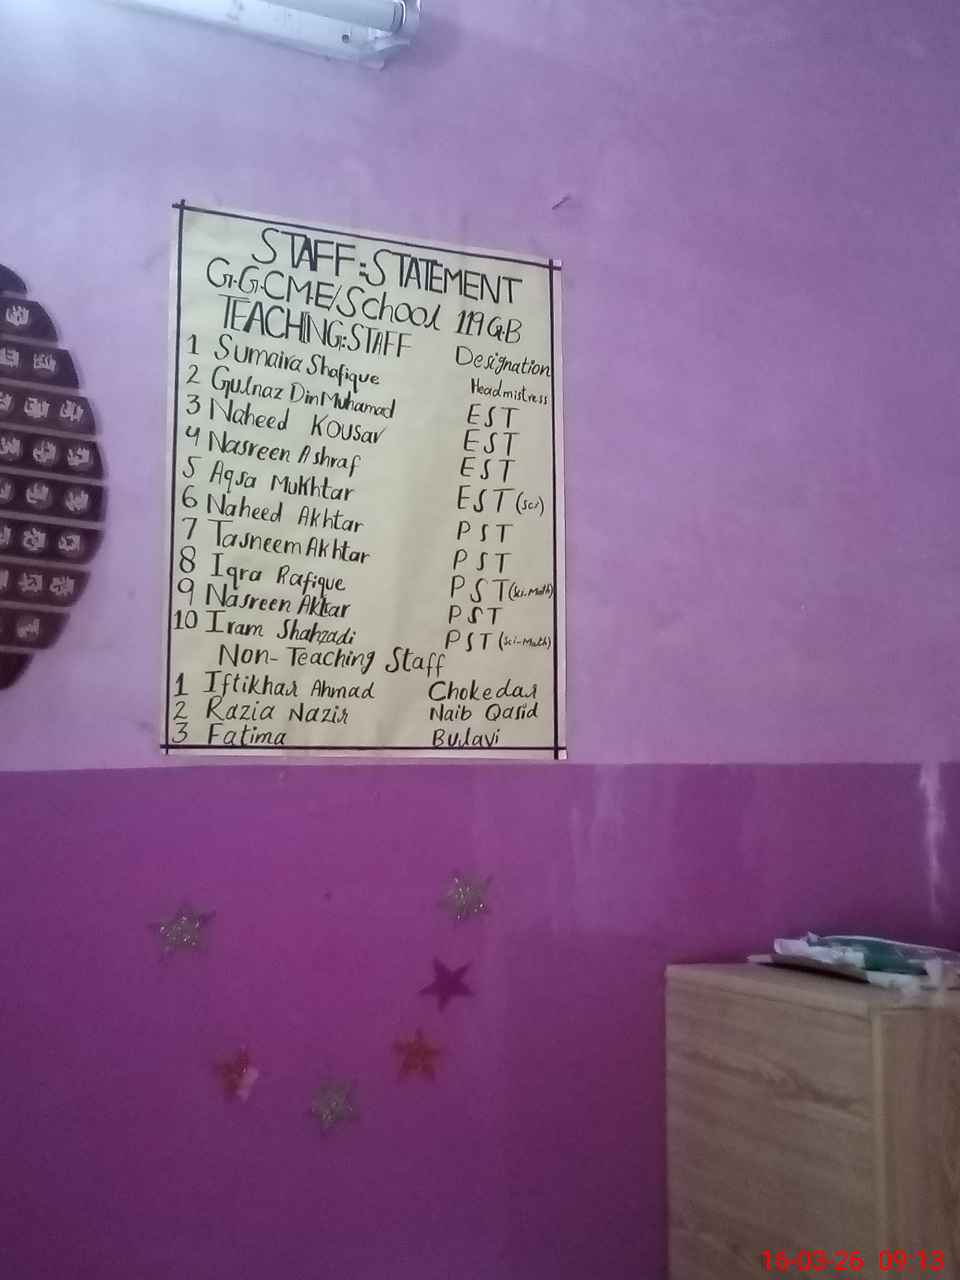 STAFF:STATEMENT
G.G.CM.E/School 119 G.B
TEACHING:STAFF Designation
1 Sumaira Shafique Headmistress
2 Gulnaz Din Muhamad EST
3 Naheed Kousar EST
4 Nasreen Ashraf EST
5 Aqsa Mukhtar EST (Sci)
6 Naheed Akhtar PST
7 Tasneem Akhtar PST
8 Iqra Rafique PST (Sci-Math)
9 Nasreen Akhtar PST
10 Iram Shahzadi PST (Sci-Math)
Non-Teaching Staff
1 Iftikhar Ahmad Chokedar
2 Razia Nazir Naib Qasid
3 Fatima Bulavi
16-03-26 09:13